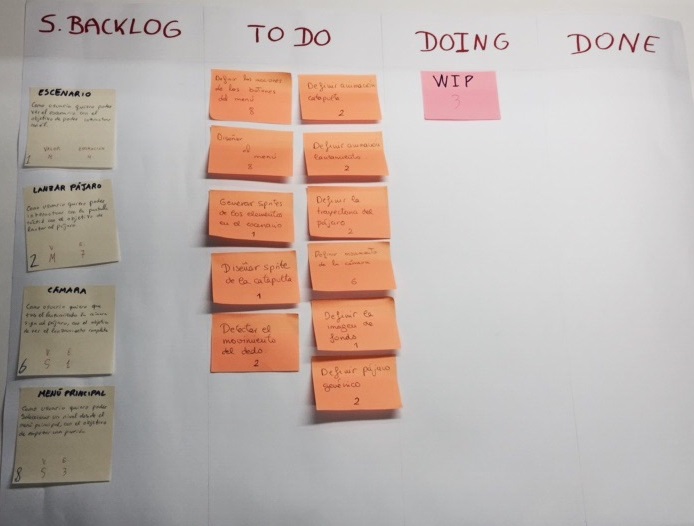 S. BACKLOG
TO DO
DOING
DONE
ESCENARIO
Como usuario quiero poder
ver el escenario con el
objetivo de poder
1
LANZAR PÁJARO
Como usuario quiero poder
con el objetivo de
lanzar el pájaro
V E
2 M 7
CÁMARA
Como usuario quiero que
el pájaro, con el objetivo
de ver el
6 S 1
MENÚ PRINCIPAL
Como usuario quiero poder
seleccionar un nivel desde el
menú principal, con el objetivo
de empezar una partida
8 S 3
Definir las acciones
de los botones
del menú
8
Diseñar
el menú
8
Generar sprites
de los elementos
en el escenario
1
Diseñar sprite
de la catapulta
1
Detectar el
movimiento
del dedo
2
Definir animación
catapulta
2
Definir animación
2
Definir la
trayectoria del
pájaro
2
Definir movimiento
de la cámara
6
Definir la
imagen de
fondo
1
Definir pájaro
genérico
2
WIP
3